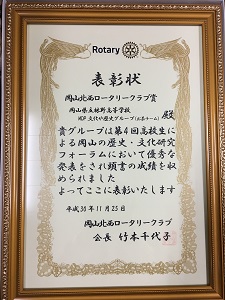 Rotary
表彰状
岡山北西ロータリークラブ賞
岡山県立林野高等学校
文化や歴史グループ
殿
貴グループは第4回高校生に
よる岡山の歴史・文化研究
フォーラムにおいて優秀な
発表をされ頭書の成績を収
められました
よってここに表彰いたします
平成30年11月23日
岡山北西ロータリークラブ
会長 竹本千代子